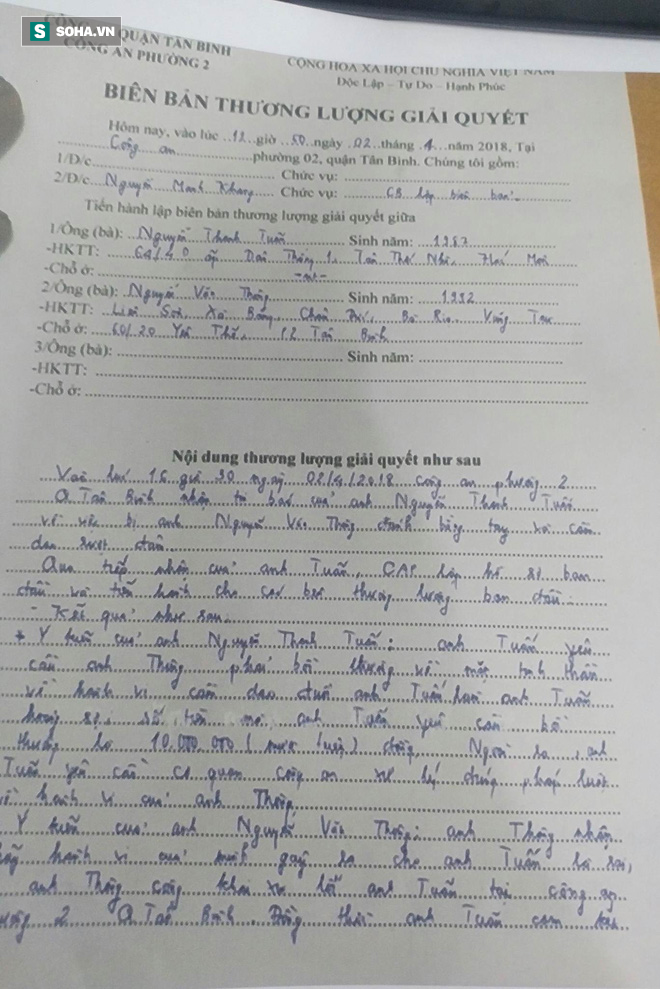 S SOHA.VN
CÔNG AN QUẬN TÂN BÌNH
CÔNG AN PHƯỜNG 2
CỘNG HÒA XÃ HỘI CHỦ NGHĨA VIỆT NAM
Độc Lập – Tự Do – Hạnh Phúc
BIÊN BẢN THƯƠNG LƯỢNG GIẢI QUYẾT
Hôm nay, vào lúc 12 giờ 50 ngày 02 tháng 4 năm 2018, Tại
Công an phường 02, quận Tân Bình. Chúng tôi gồm:
1/Đ/c Chức vụ:
2/Đ/c Nguyễn Mạnh Khang Chức vụ: CB lập biên bản
Tiến hành lập biên bản thương lượng giải quyết giữa
1/Ông (bà): Nguyễn Thanh Tuấn Sinh năm: 1987
-HKTT: 64/4D ấp Tân Thới Nhì, Hóc Môn
-Chỗ ở:
2/Ông (bà): Nguyễn Văn Thông Sinh năm: 1992
-HKTT: Xà Bang, Châu Đức, Bà Rịa Vũng Tàu
-Chỗ ở: 60/20 Yên Thế, P2 Tân Bình
3/Ông (bà): Sinh năm:
-HKTT:
-Chỗ ở:
Nội dung thương lượng giải quyết như sau
Vào lúc 16 giờ 30 ngày 02/4/2018 công an phường 2
Q Tân Bình nhận tin báo của anh Nguyễn Thanh Tuấn
về việc bị anh Nguyễn Văn Thông đánh bằng tay và cầm
dao rượt đuổi
Qua tiếp nhận của anh Tuấn, CAP lập hồ sơ ban
đầu và tiến hành cho các bên thương lượng ban đầu
- Kết quả như sau.
* Ý kiến của anh Nguyễn Thanh Tuấn: anh Tuấn yêu
cầu anh Thông phải bồi thường về mặt tinh thần
về hành vi cầm dao đuổi anh Tuấn làm anh Tuấn
hoảng sợ, số tiền mà anh Tuấn yêu cầu bồi
thường là 10.000.000 (mười triệu) đồng, Ngoài ra anh
Tuấn yêu cầu cơ quan công an xử lý đúng pháp luật
về hành vi của anh Thông
Ý kiến của anh Nguyễn Văn Thông: anh Thông nhận
thấy hành vi của mình gây ra cho anh Tuấn là sai,
anh Thông công khai xin lỗi anh Tuấn tại công an
phường 2 Q Tân Bình. Đồng thời anh Tuấn cam kết